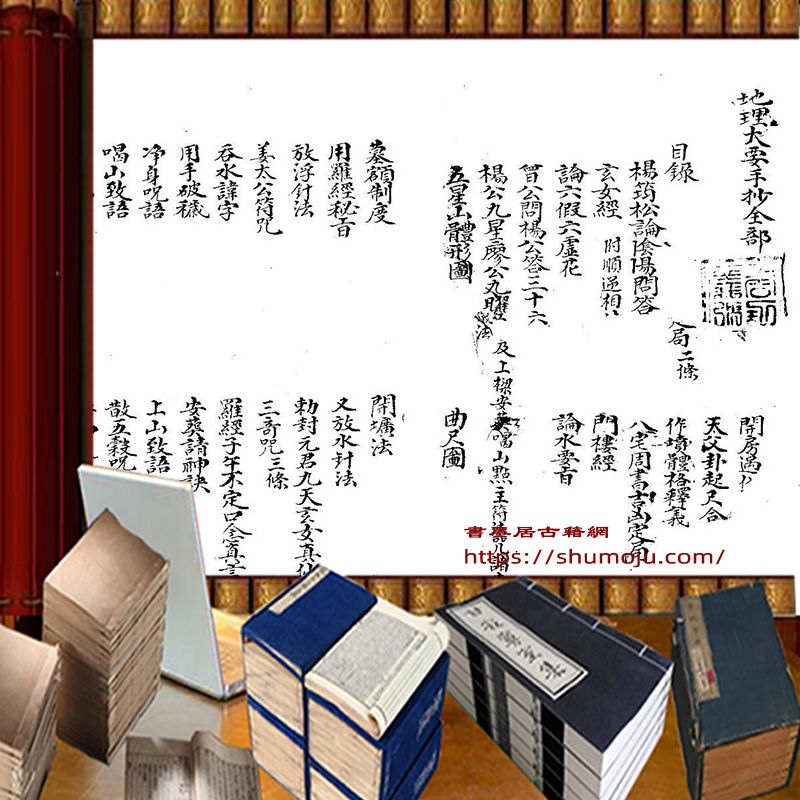 地理大要手抄全部
目錄
楊筠松論陰陽問答
玄女經 附順逆相
局二條
論六假六虛花
曾公問楊公答三十六
楊公九星廖公九曜
及上樑安葬喝山點主符
五星山體形圖
開房遇
天父卦起尺合
作墳體格釋義
八宅周書吉凶定局
門樓經
論水要旨
曲尺圖
墓額制度
用羅經秘旨
放浮針法
姜太公符咒
吞水諱字
用手破穢
净身咒語
喝山致語
開壙法
又放水針法
勅封元君九天玄女真仙
三奇咒三條
羅經子午不定口念真言
安葬請神訣
上山致語
散五穀咒
書墨居古籍網
https://shumoju.com/